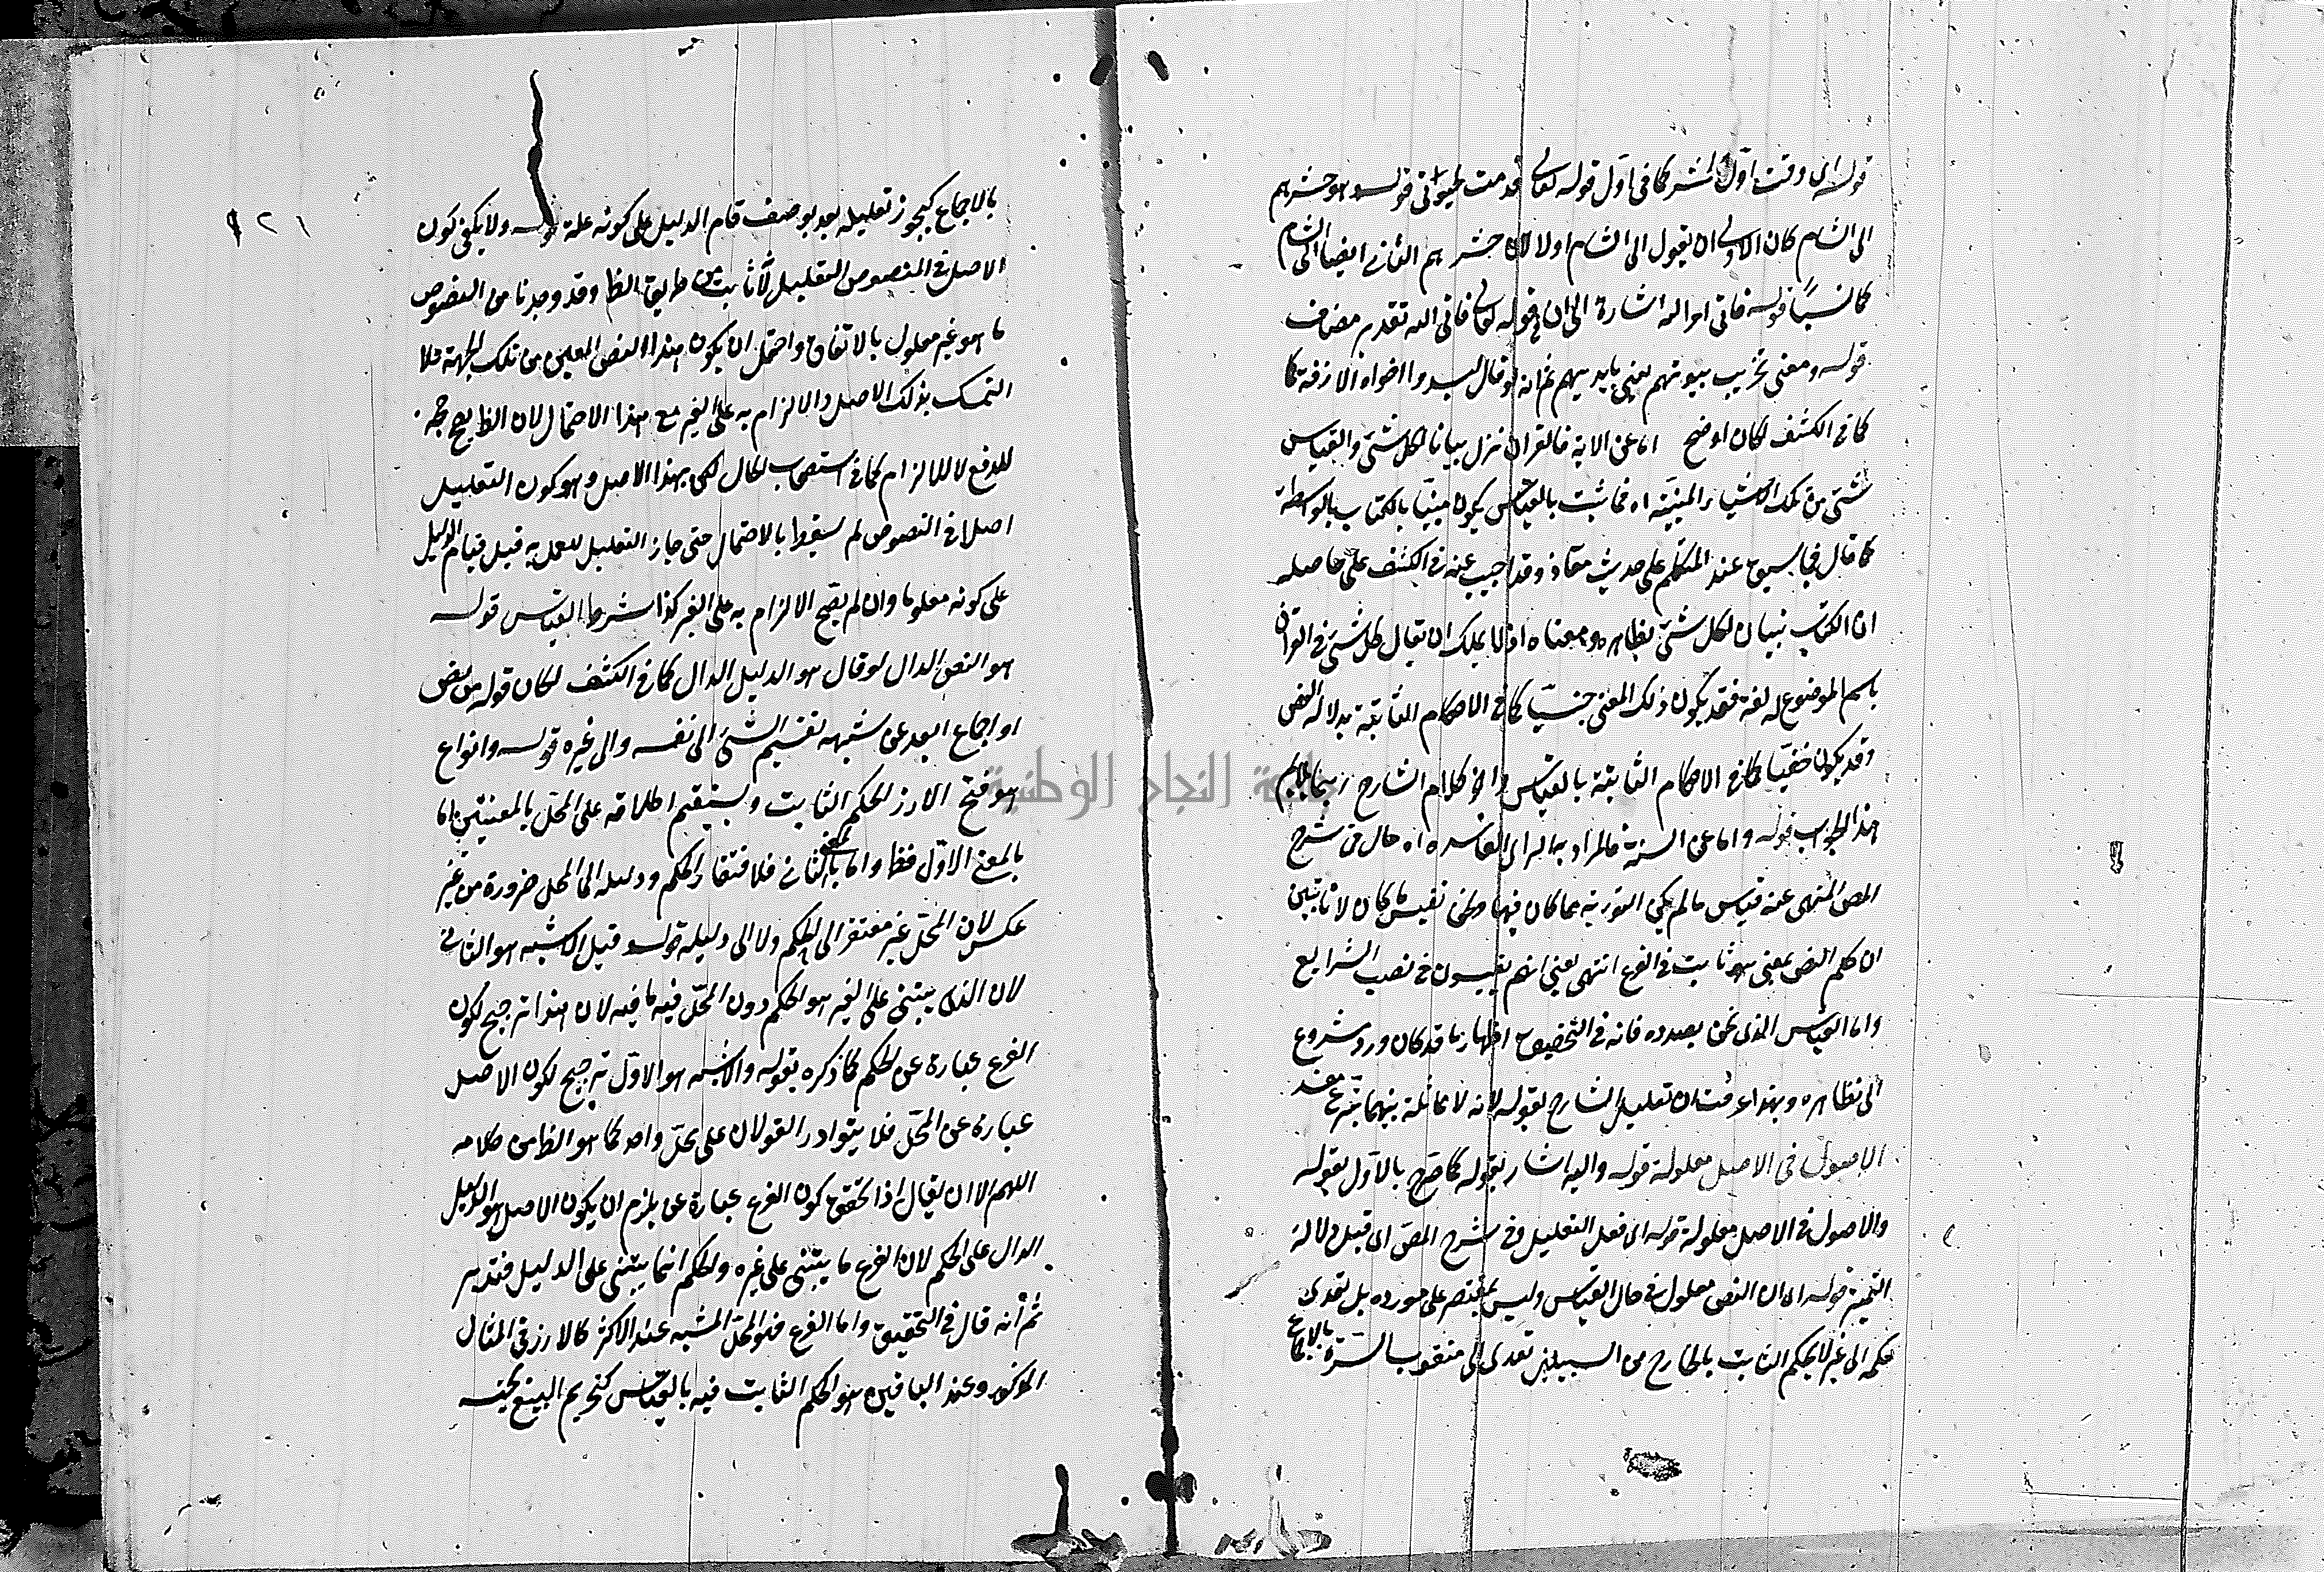 قوله اى وقت اول الحشر كما فى اول قوله تعالى قدمت لحياتى قوله وهو حشرهم
الى الشام كان الاولى ان يقول الى الشام اولا لان حشرهم الثانى ايضا الى الشام
قوله فاتى امر الله اشارة الى ان فى قوله تعالى فاتى الله تقدير مضاف
قوله ومعنى تخريب بيوتهم يعنى بايديهم ثم انه لو قال ليسدوا افواه الازقة كما
كما فى الكشف لكان اوضح اما عن الاية فالقران نزل بيانا لكل شئ والقياس
شئ من تلك الاشياء المبينة اه فما ثبت بالقياس يكون مبينا بالكتاب بالواسطة
كما قال فيما سيق عند المتكلم على حديث معاذ وقد اجيب عنه فى الكشف على ما حاصله
ان الكتاب تبيان لكل شئ بظاهره وبمعناه اذ لا يمكن ان يقال كل شئ فى القران
باسمه الموضوع له لغة فقد يكون ذلك المعنى جليا كما فى الاحكام الثابتة بدلالة النص
وقد يكون خفيا كما فى الاحكام الثابتة بالقياس واخر كلام الشارح ربما يلايم
هذا الجواب قوله واما عن السنة فالمراد به الراى الفاسد اه قال فى شرح
المص المنهى عنه قياس ما لم يكن التورية مما كان فيها وكان لاثبات
ان حكم النص بمعنى هو ثابت فى الفرع انتهى يعنى انهم يقيسون فى نصب الشرايع
واما القياس الذى نحن بصدده فانه فى التحقيق اظهار ما قد كان ورد مشروع
الى نظايره وبهذا عرفت ان تعليل الشارح بقوله لانه لا مماثلة بينهما
الاصول فى الاصل معلولة قوله واليه اشار بقوله كما صرح بالاول بقوله
والاصول فى الاصل معلولة قوله اى فعل التعليل وفى شرح المص اى قبل دلالة
التمييز قوله اى ان النص معلول فى حال القياس وليس بمقتصر على مورده بل تعدى
حكمه الى غيره كحكم الثابت بالخارج من السبيلين تعدى الى مثقوب السرة بالاجماع
٩٢١
بالاجماع كيجوز تعليله بعد بوصف قام الدليل على كونه علة قوله ولا يكفى كون
الاصل فى المنصوص التعليل لانه ثابت من طريق الظ وقد وجدنا من النصوص
ما هو غير معلول بالاتفاق واحتمل ان يكون هذا النص المعين من تلك الجهة فلا
التمسك بذلك الاصل والالزام به على الغير مع هذا الاحتمال لان الظ يصح حجة
للدفع لا للالزام كما فى استصحاب الحال لكن بهذا الاصل وهو كون التعليل
اصلا فى النصوص لم يسقط بالاحتمال حتى جاز التعليل للعمل به قبل قيام الدليل
على كونه معلولا وان لم يصح الالزام به على الغير كذا شرط القياس قوله
هو النص الدال لو قال هو الدليل الدال كما فى الكشف لكان قوله من نص
او اجماع ابعد عن شبهة تقسيم الشئ الى نفسه والى غيره قوله وانواع
هو قبح الارز لحكم الثابت ويستقيم اطلاقه على المحل بالمعنيين اما
بالمعنى الاول فظ واما بالمعنى الثانى فلافتقار الحكم ودليله الى المحل ضرورة من غير
عكس لان المحل غير مفتقر الى الحكم ولا الى دليله قوله قيل الاشبه هو الثانى
لان الذى يبتنى على الغير هو الحكم دون المحل فيه ما فيه لان هذا ترجيح لكون
الفرع عبارة عن الحكم كما ذكره بقوله والاشبه هو الاول ترجيح لكون الاصل
عبارة عن المحل فلا يتوارد القولان على محل واحد كما هو الظ من كلامه
اللهم الا ان يقال اذا تحقق كون الفرع عبارة عن يلزم ان يكون الاصل هو الدليل
الدال على الحكم لان الفرع ما يبتنى على غيره والحكم انما يبتنى على الدليل فتدبر
ثم انه قال فى التحقيق واما الفرع فهو المحل المشبه عند الاكثر كالارز فى المثال
المذكور وعند الباقين هو الحكم الثابت فيه بالقياس كتحريم البيع بجنسه
جامعة النجاح الوطنية